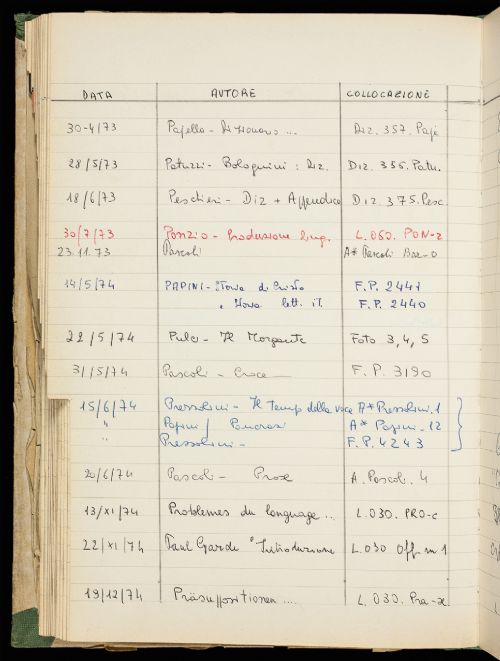 DATA AUTORE COLLOCAZIONE
30-4/73 Pajello - Dizionario ... Diz. 357. Paje
28/5/73 Patuzzi - Bolognini : Diz. Diz. 356. Patu.
18/6/73 Peschieri - Diz + Appendice Diz. 375. Pesc.
30/7/73 Ponzio - Produzione ling. L. 030. PON-z
23.11.73 Pascoli A* Pascoli
14/5/74 PAPINI - Storia di Cristo F.P. 2441
e Storia lett. it. F.P. 2440
22/5/74 Pulci - Il Morgante Foto 3, 4, 5
31/5/74 Pascoli - Croce F.P. 3190
15/6/74 Prezzolini - Il Tempo della voce A* Prezzolini. 1
" Papini / Pancrazi A* Papini - 12
" Prezzolini - F.P. 4243
20/6/74 Pascoli - Prose A. Pascoli. 4
13/XI/74 Problemes du language ... L. 030. PRO-c
22/XI/74 Paul Garde "Introduzione L. 030
19/12/74 Präsuppositionen .... L. 030. Pra-x